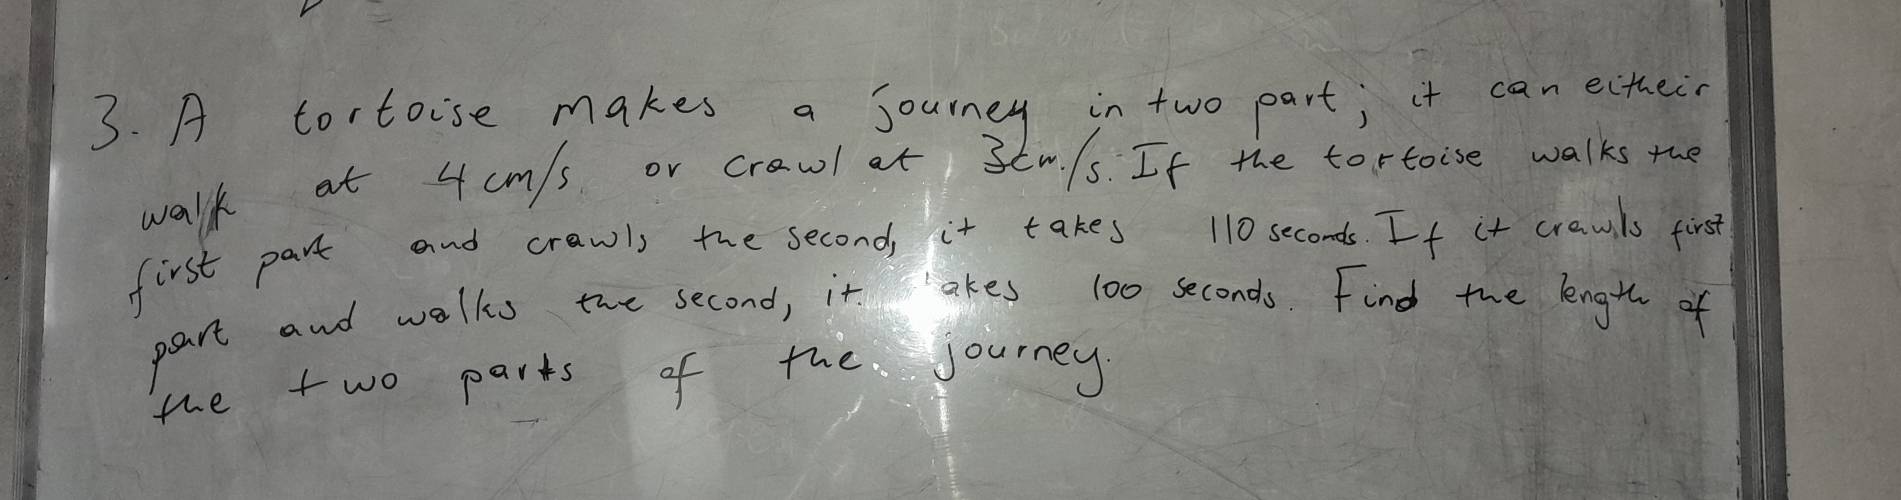 3. A tortoise makes a journey in two part; it can eitheir
walk at 4 cm/s or crawl at 3cm/s. If the tortoise walks the
first part and crawls the second, it takes 110 seconds. If it crawls first
part and walks the second, it takes 100 seconds. Find the length of
the two parts of the journey.